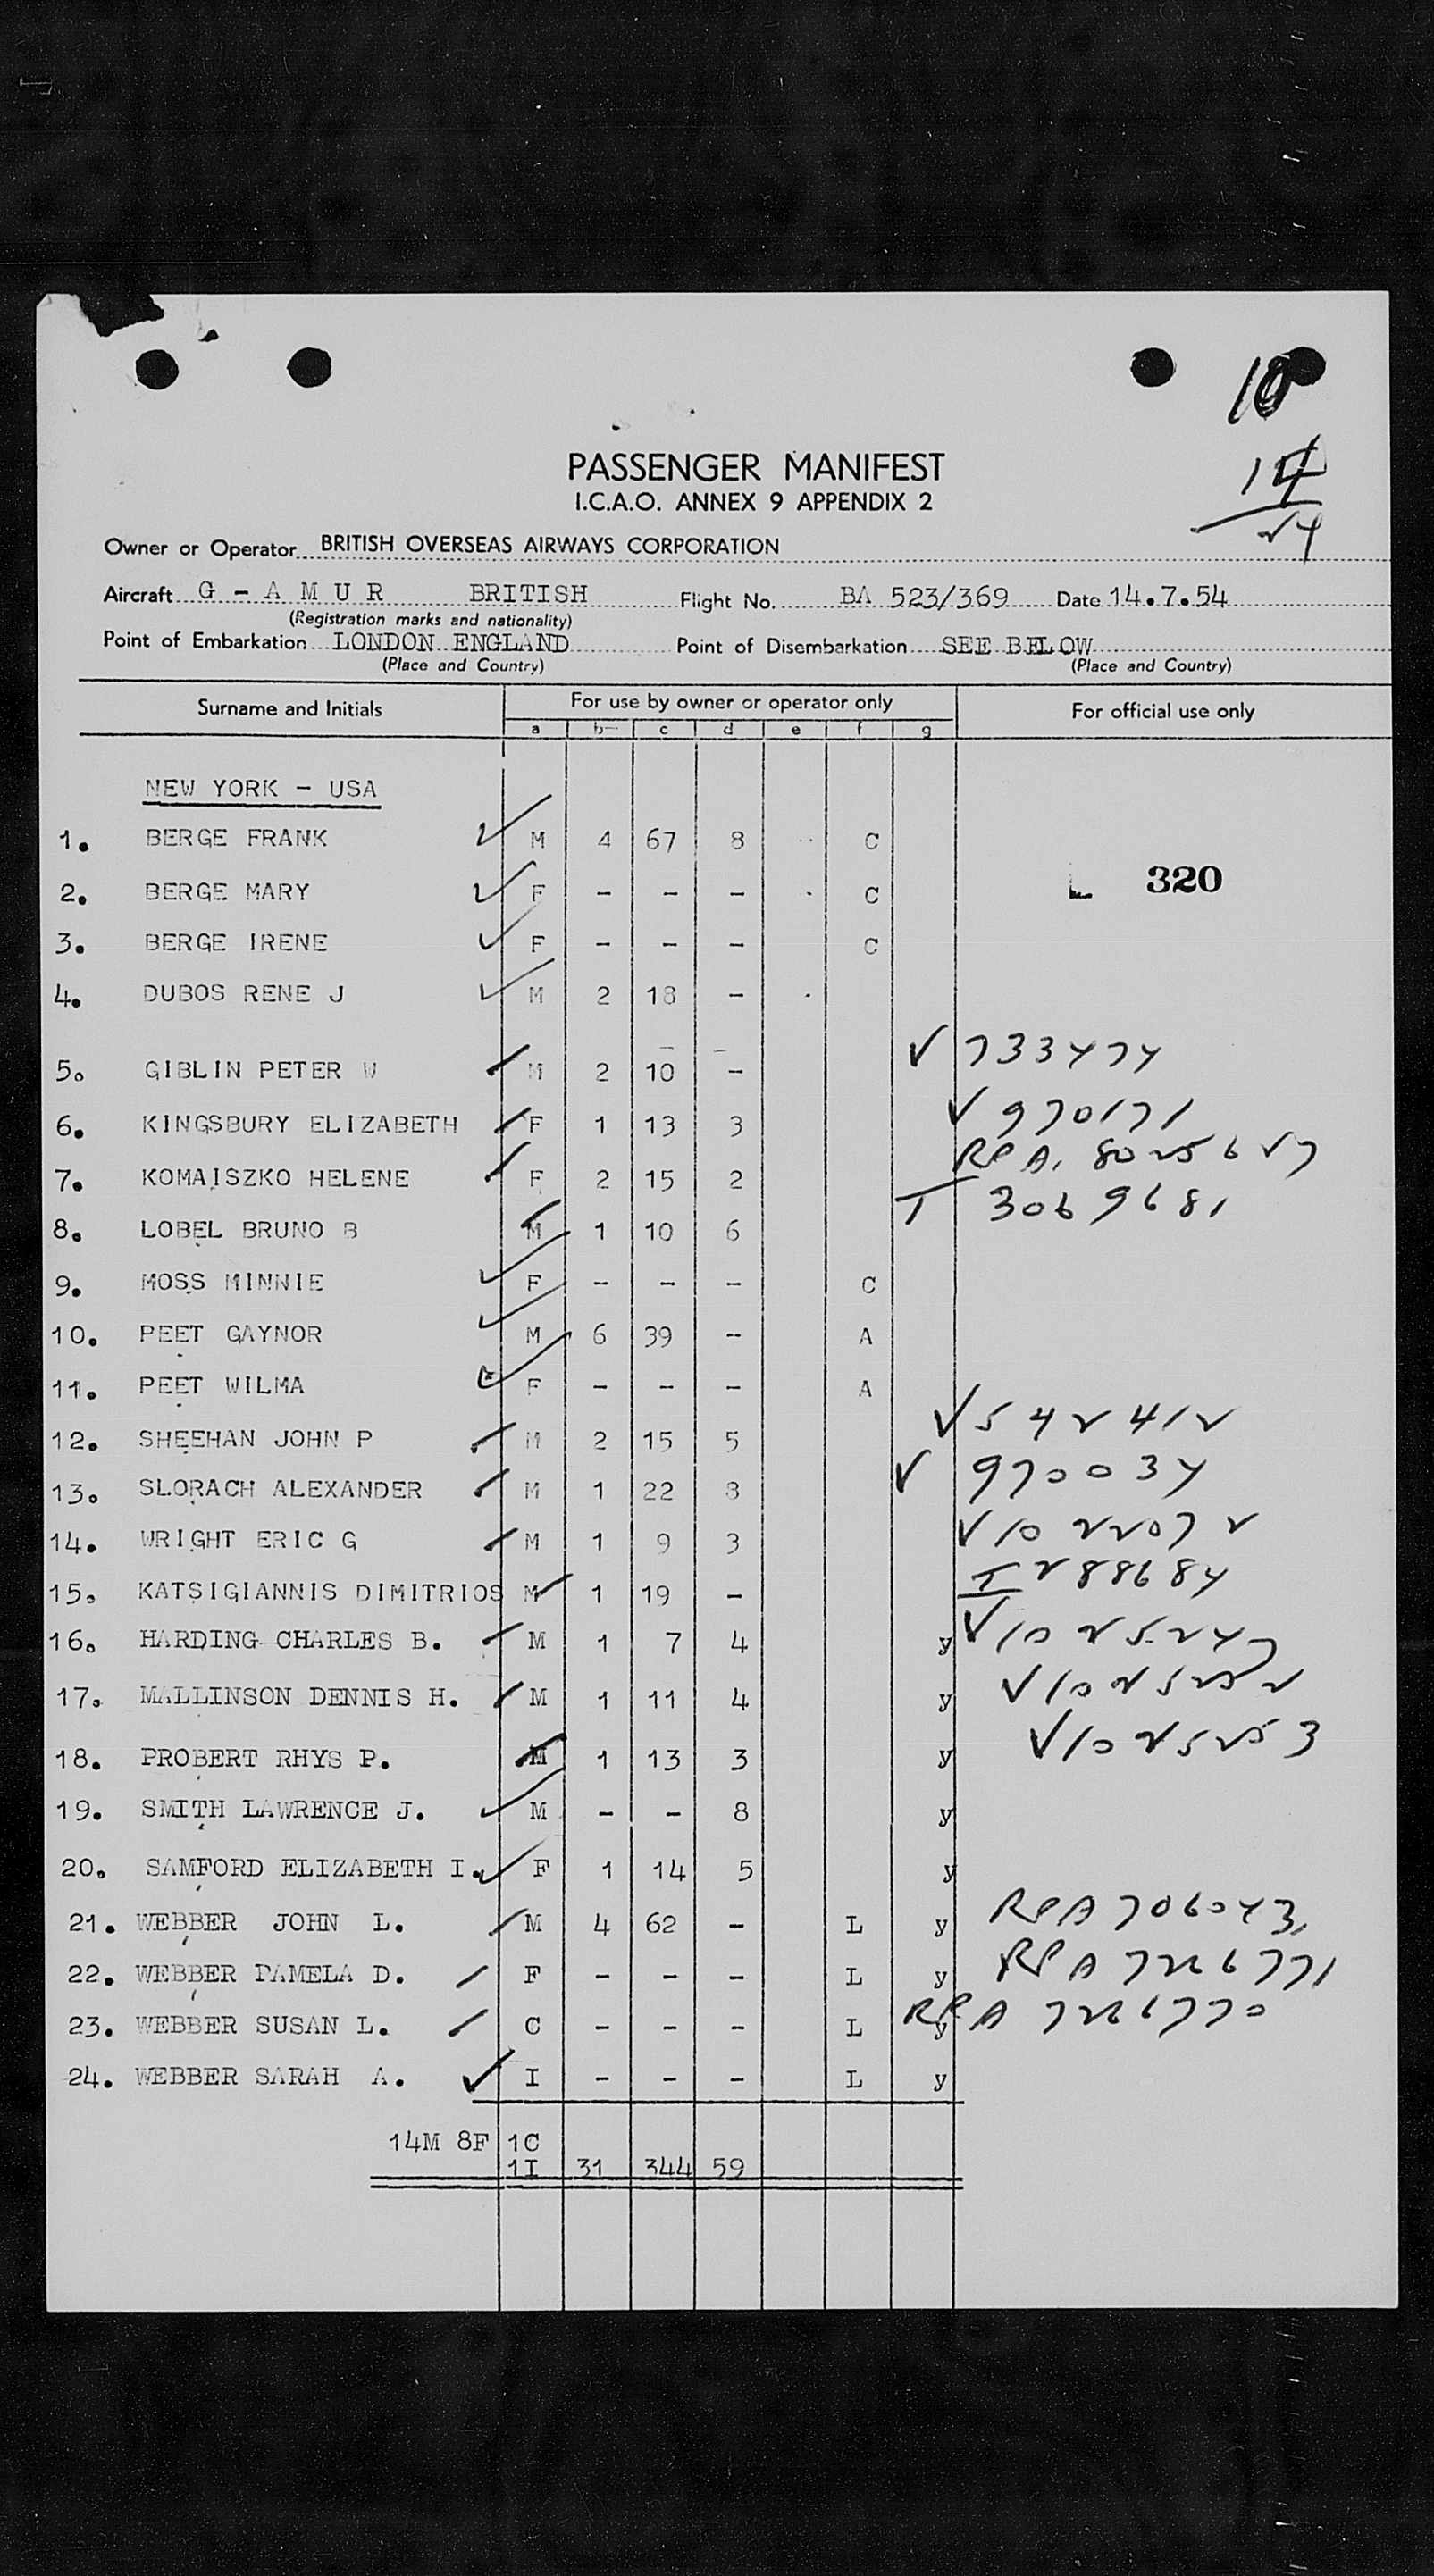 10
14
24
PASSENGER MANIFEST
I.C.A.O. ANNEX 9 APPENDIX 2
Owner or Operator BRITISH OVERSEAS AIRWAYS CORPORATION
Aircraft G - A M U R BRITISH Flight No. BA 523/369 Date 14.7.54
(Registration marks and nationality)
Point of Embarkation LONDON ENGLAND Point of Disembarkation SEE BELOW
(Place and Country) (Place and Country)
Surname and Initials For use by owner or operator only For official use only
a b c d e f g
NEW YORK - USA
1. BERGE FRANK M 4 67 8 C
320
2. BERGE MARY F - - - C
3. BERGE IRENE F - - - C
4. DUBOS RENE J M 2 18 -
5. GIBLIN PETER W M 2 10 - V 733474
6. KINGSBURY ELIZABETH F 1 13 3 V 970171
7. KOMAISZKO HELENE F 2 15 2 RPA
8. LOBEL BRUNO B M 1 10 6 I 3069681
9. MOSS MINNIE F - - - C
10. PEET GAYNOR M 6 39 - A
11. PEET WILMA F - - - A
12. SHEEHAN JOHN P M 2 15 5 V 542412
13. SLORACH ALEXANDER M 1 22 8 V 970034
14. WRIGHT ERIC G M 1 9 3 V 1022072
15. KATSIGIANNIS DIMITRIOS M 1 19 - I 288684
16. HARDING CHARLES B. M 1 7 4 y V 1025247
17. MALLINSON DENNIS H. M 1 11 4 y V 1025252
18. PROBERT RHYS P. M 1 13 3 y V 1025253
19. SMITH LAWRENCE J. M - - 8 y
20. SAMFORD ELIZABETH I. F 1 14 5 y
21. WEBBER JOHN L. M 4 62 - L y RPA 706043
22. WEBBER PAMELA D. F - - - L y RPA 7226771
23. WEBBER SUSAN L. C - - - L y RPA 7226770
24. WEBBER SARAH A. I - - - L y
14M 8F 1C
1I 31 344 59